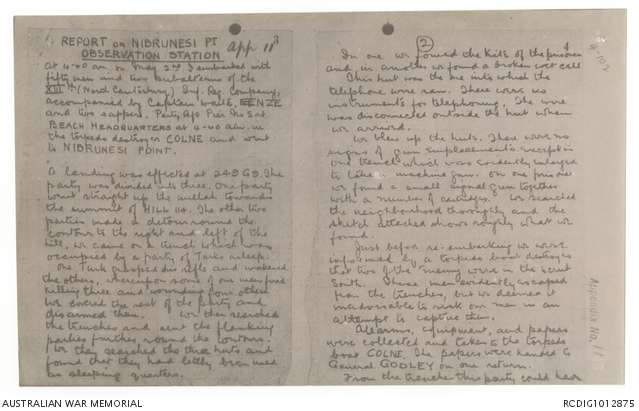 REPORT on NIBRUNESI PT
OBSERVATION STATION
App 11
At 4-00 am. on May 2nd I embarked with
fifty men and two subalterns of the
XIII th (Nord Canterbury) Inf. Reg Company,
accompanied by Captain Waite, NZE
and two sappers. Party left Pier No 3 at
BEACH HEADQUARTERS at 4-40 a.m. in
the torpedo destroyer COLNE and went
to NIBRUNESI POINT.
A landing was effected at 249 G9. The
party was divided into three. One party
went straight up the towards
the summit of HILL 114. The other two
parties made a detour round the
contours to the right and left of the
hill, we came on a trench which was
occupied by a party of Turks asleep.
One Turk grasped his rifle and wakened
the others, whereupon some of our men fired
killing three and wounding four others
we covered the rest of the party and
disarmed them. We then searched
the trenches and sent the flanking
parties further round the contours.
We then searched the three huts and
found that they had lately been used
as sleeping quarters.
(2)
In one we found the kits of the prisoners
and in another we found a broken wet cell.
This hut was the one into which the
telephone wire ran. There were no
instruments for telephoning. The wire
was disconnected outside the hut when
we arrived.
We blew up the huts. There were no
signs of gun emplacements except in
one trench which was evidently enlarged
to take a machine gun. On one prisoner
we found a small signal gun together
with a number of cartridges. We searched
the neighborhood thoroughly and the
sketch attached shows roughly what we
found.
Just before re-embarking we were
informed by a torpedo boat destroyer
that two of the enemy were in the scrub
South. These men evidently escaped
from the trenches, but we deemed it
inadvisable to risk our men in an
attempt to capture them.
All arms, equipment, and papers
were collected and taken to the torpedo
boat COLNE. The papers were handed to
General GODLEY on our return.
From the trenches this party could have
Appendix No. 11
AUSTRALIAN WAR MEMORIAL
RCDIG1012875